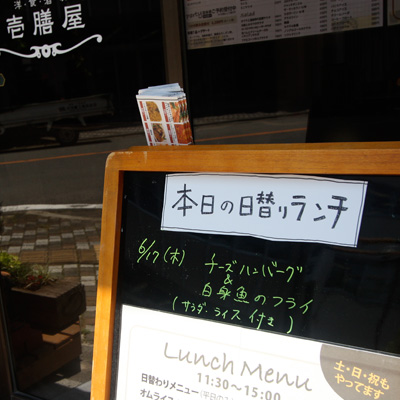 洋・食・酒
壱膳屋
本日の日替りランチ
6/17(木) チーズハンバーグ
&
白身魚のフライ
(サラダ・ライス付き)
Lunch Menu
11:30〜15:00
日替わりメニュー(平日のみ)
オムライス
土・日・祝も
やってます